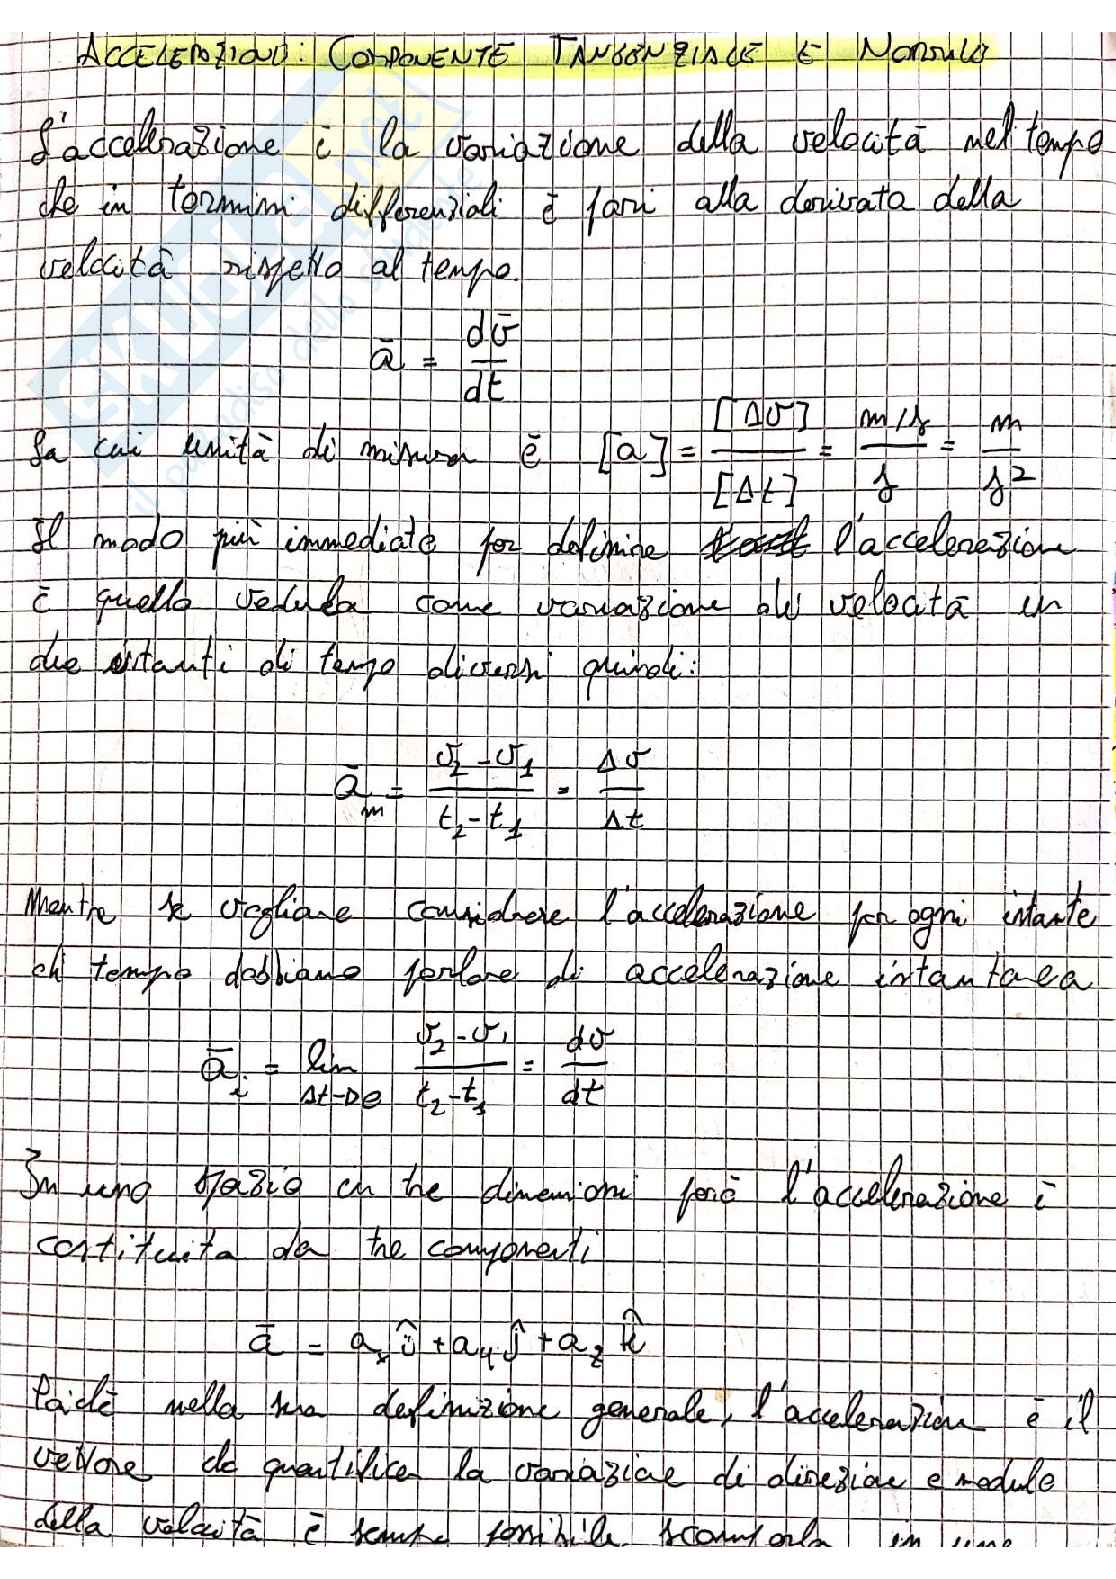 ACCELERAZIONE: COMPONENTE TANGENZIALE E NORMALE
L'accelerazione è la variazione della velocità nel tempo
che in termini differenziali è pari alla derivata della
velocità rispetto al tempo.
ā = dv̄/dt
La cui unità di misura è [a] = [Δv]/[Δt] = m/s/s = m/s²
Il modo più immediato per definire l'accelerazione
è quello vederla come variazione di velocità in
due istanti di tempo diversi quindi:
ā_m = (v₂ - v₁)/(t₂ - t₁) = Δv/Δt
Mentre se vogliamo considerare l'accelerazione per ogni istante
di tempo dobbiamo parlare di accelerazione istantanea
ā_i = lim Δt→0 (v₂ - v₁)/(t₂ - t₁) = dv/dt
In uno spazio in tre dimensioni però l'accelerazione è
costituita da tre componenti
ā = aₓ î + a_y ĵ + a_z k̂
Poiché nella sua definizione generale, l'accelerazione è il
vettore che quantifica la variazione di direzione e modulo
della velocità è sempre possibile scomporla in una